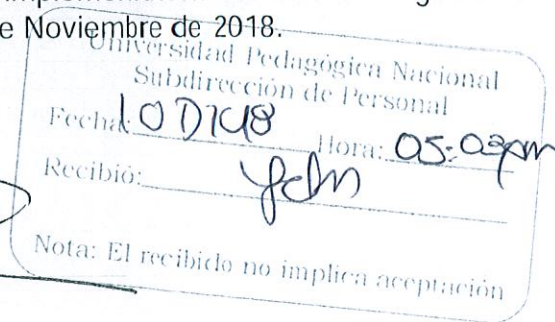 e Noviembre de 2018.
Universidad Pedagógica Nacional
Subdirección de Personal
Fecha: 10 DIC18 Hora: 05:03pm
Recibió:
Nota: El recibido no implica aceptación